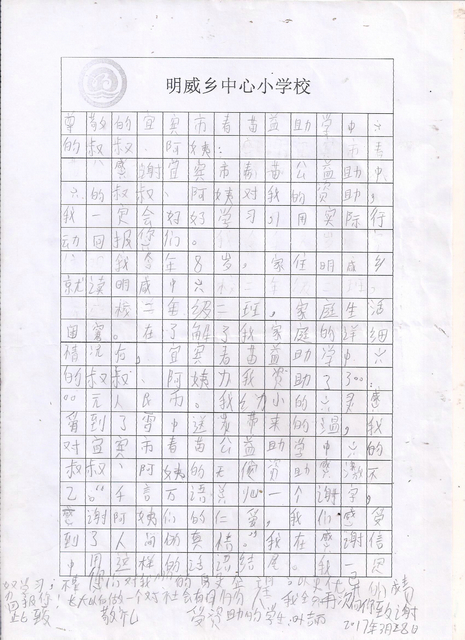 明威乡中心小学校
尊敬的宜宾市春苗益助学中心
的叔叔、阿姨:
感谢宜宾市春苗公益助中
心的叔叔、阿姨对我的资助,
我一定会好好学习,用实际行
动回报你们。
我今年8岁。家住明威乡
就读明威中心
校二年级二班,家庭生活
困难。在了解了我家庭的详细
情况后,宜宾春苗益助学中心
的叔叔、阿姨为我资助了
元人民币。我幼小的心灵感
受到了雪中送炭带来的温,我
对宜宾市春苗公益助学中心的
叔叔、阿姨的无私资助感激不
已。千言万语总一个谢字,
感谢阿姨们的仁爱,我们感受
到了人间的真情。我在感谢信
中用这样的话语结尾。我一定
好学习,
回报你们!长大以后做一个对社会有用的人
此致
敬礼
受资助的学生:
2017年3月28日